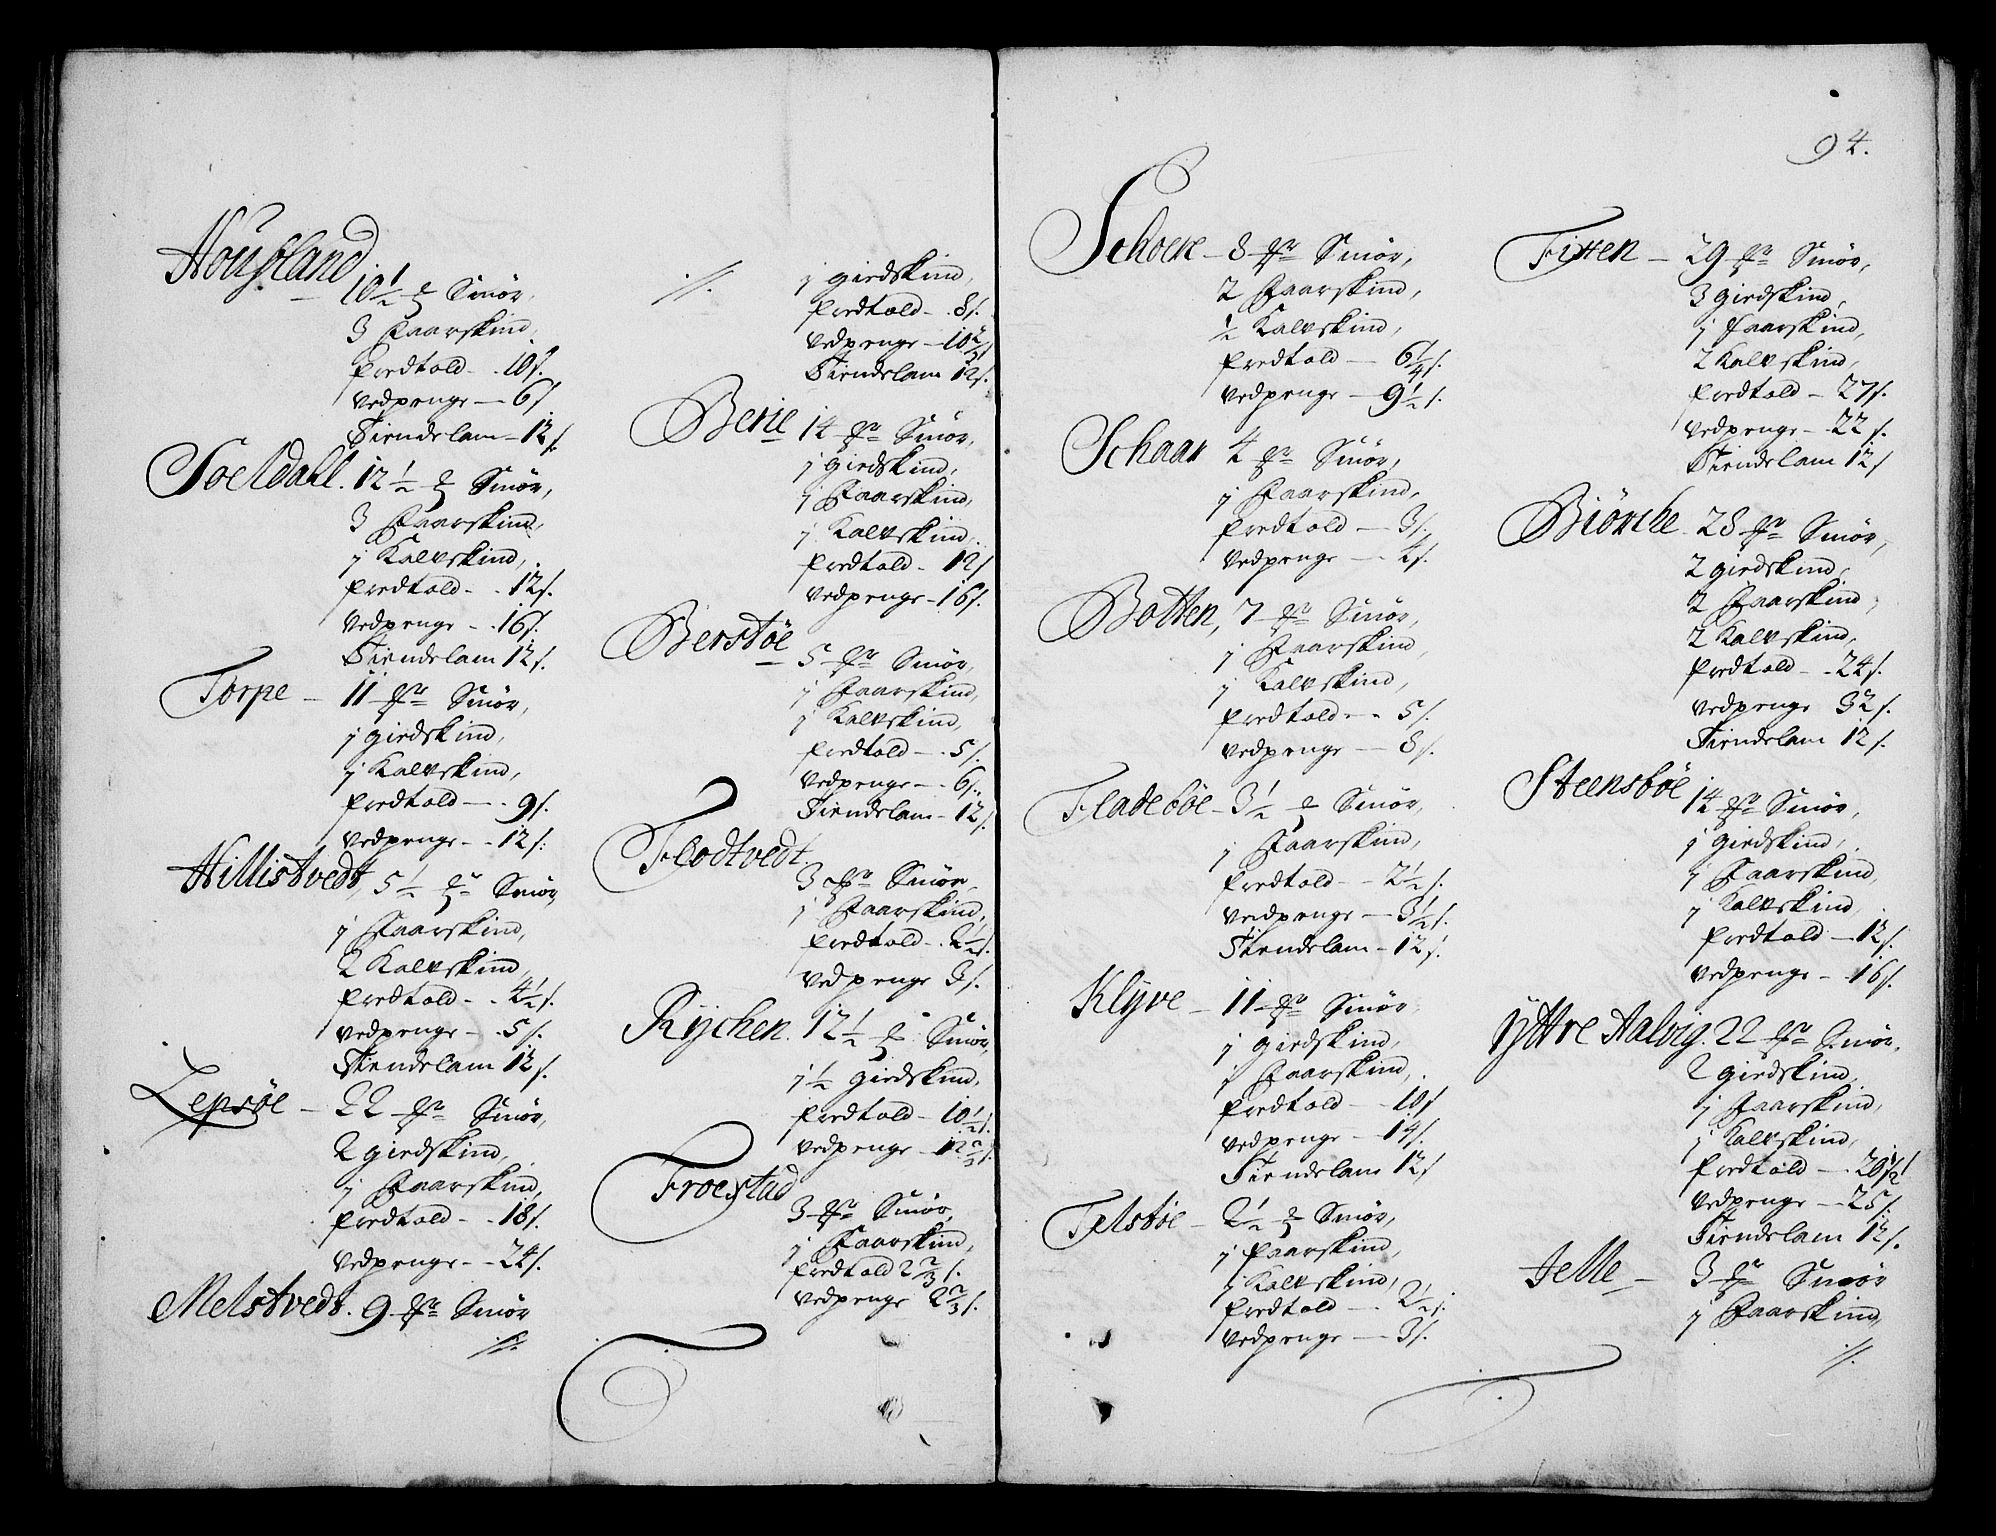 Housland
10½ ℔ Smör,
3 Faarskind,
Fredtold - 10 s.
Vedpenge - 6 s
Tiendelam - 12 s.
Soeldall. 12½ ℔ Smör,
3 Faarskind,
j Kalvskind,
Fredtold - 12 s.
Vedpenge - 16 s.
Tiendelam 12 s.
Torpe - 11 Smör,
j giedskind,
j Kalvskind,
Fredtold - 9 s.
Vedpenge - 12 s.
Hillistvedt, 5½ Smör,
j Faarskind,
2 Kalvskind,
Fredtold - 4½ s.
Vedpenge - 5 s.
Tiendelam 12 s.
Lepsöe - 22 Smör,
2 giedskind,
j Faarskind,
Fredtold - 18 s.
Vedpenge - 24 s.
Melstvedt. 9 Smör
./.
./. j giedskind,
Fredtold - 8 s.
Vedpenge - 10⅔ s
Tiendelam 12 s.
Berie 14 Smör,
j giedskind,
j Faarskind,
j Kalvskind,
Fredtold - 12 s
Vedpenge - 16 s.
Berstöe
5 Smör,
j Faarskind,
j Kalvskind,
Fredtold - 5 s.
Vedpenge - 6 s.
Tiendelam - 12 s.
Flodtvedt.
3 Smör,
j Faarskind,
Fredtold - 2½ s.
Vedpenge 3 s.
Rychen. 12½ Smör,
j½ giedskind,
Fredtold - 10½ s.
Vedpenge - 12⅔ s.
Froestad
3 Smör,
j Faarskind,
Fredtold 2⅔ s.
Vedpenge 2⅔ s.
94.
Schoere - 8 Smör,
2 Faarskind,
½ Kalvskind,
Fredtold - 6¼ s.
Vedpenge - 9½ s.
Schaar 4 Smör,
j Faarskind,
Fredtold - 3 s.
Vedpenge - 4 s.
Botten, 7 Smör,
j Faarskind,
j Kalvskind,
Fredtold - 5 s.
Vedpenge - 8 s.
Fladeböe - 3½ ℔ Smör,
j Faarskind,
Fredtold - 2½ s.
Vedpenge - 3½ s.
Tiendelam - 12 s.
Klyve - 11 Smör,
j giedskind,
j Faarskind,
Fredtold - 10 s
Vedpenge - 14 s.
Tiendelam 12 s
Telstöe - 2½ ℔ Smör,
j Faarskind,
j Kalvskind,
Fredtold - 2½ s.
Vedpenge - 3 s.
Fitten - 29 Smör,
3 giedskind,
j Faarskind,
2 Kalvskind,
Fredtold - 27 s.
Vedpenge - 22 s.
Tiendelam 12 s
Biörche. 28 Smör,
2 giedskind,
2 Faarskind,
2 Kalvskind,
Fredtold - 24 s.
Vedpenge 32 s.
Tiendelam 12 s.
Steensböe 14 Smör,
j giedskind,
j Faarskind,
j Kalvskind,
Fredtold - 12 s.
Vedpenge - 16 s.
Yttre Aalvig. 22 Smör,
2 giedskind,
j Faarskind,
j Kalvskind,
Fredtold - 20½ s
Vedpenge - 25 s.
Tiendelam 12 s.
Jelle - 3 Smör
j Faarskind,
./.